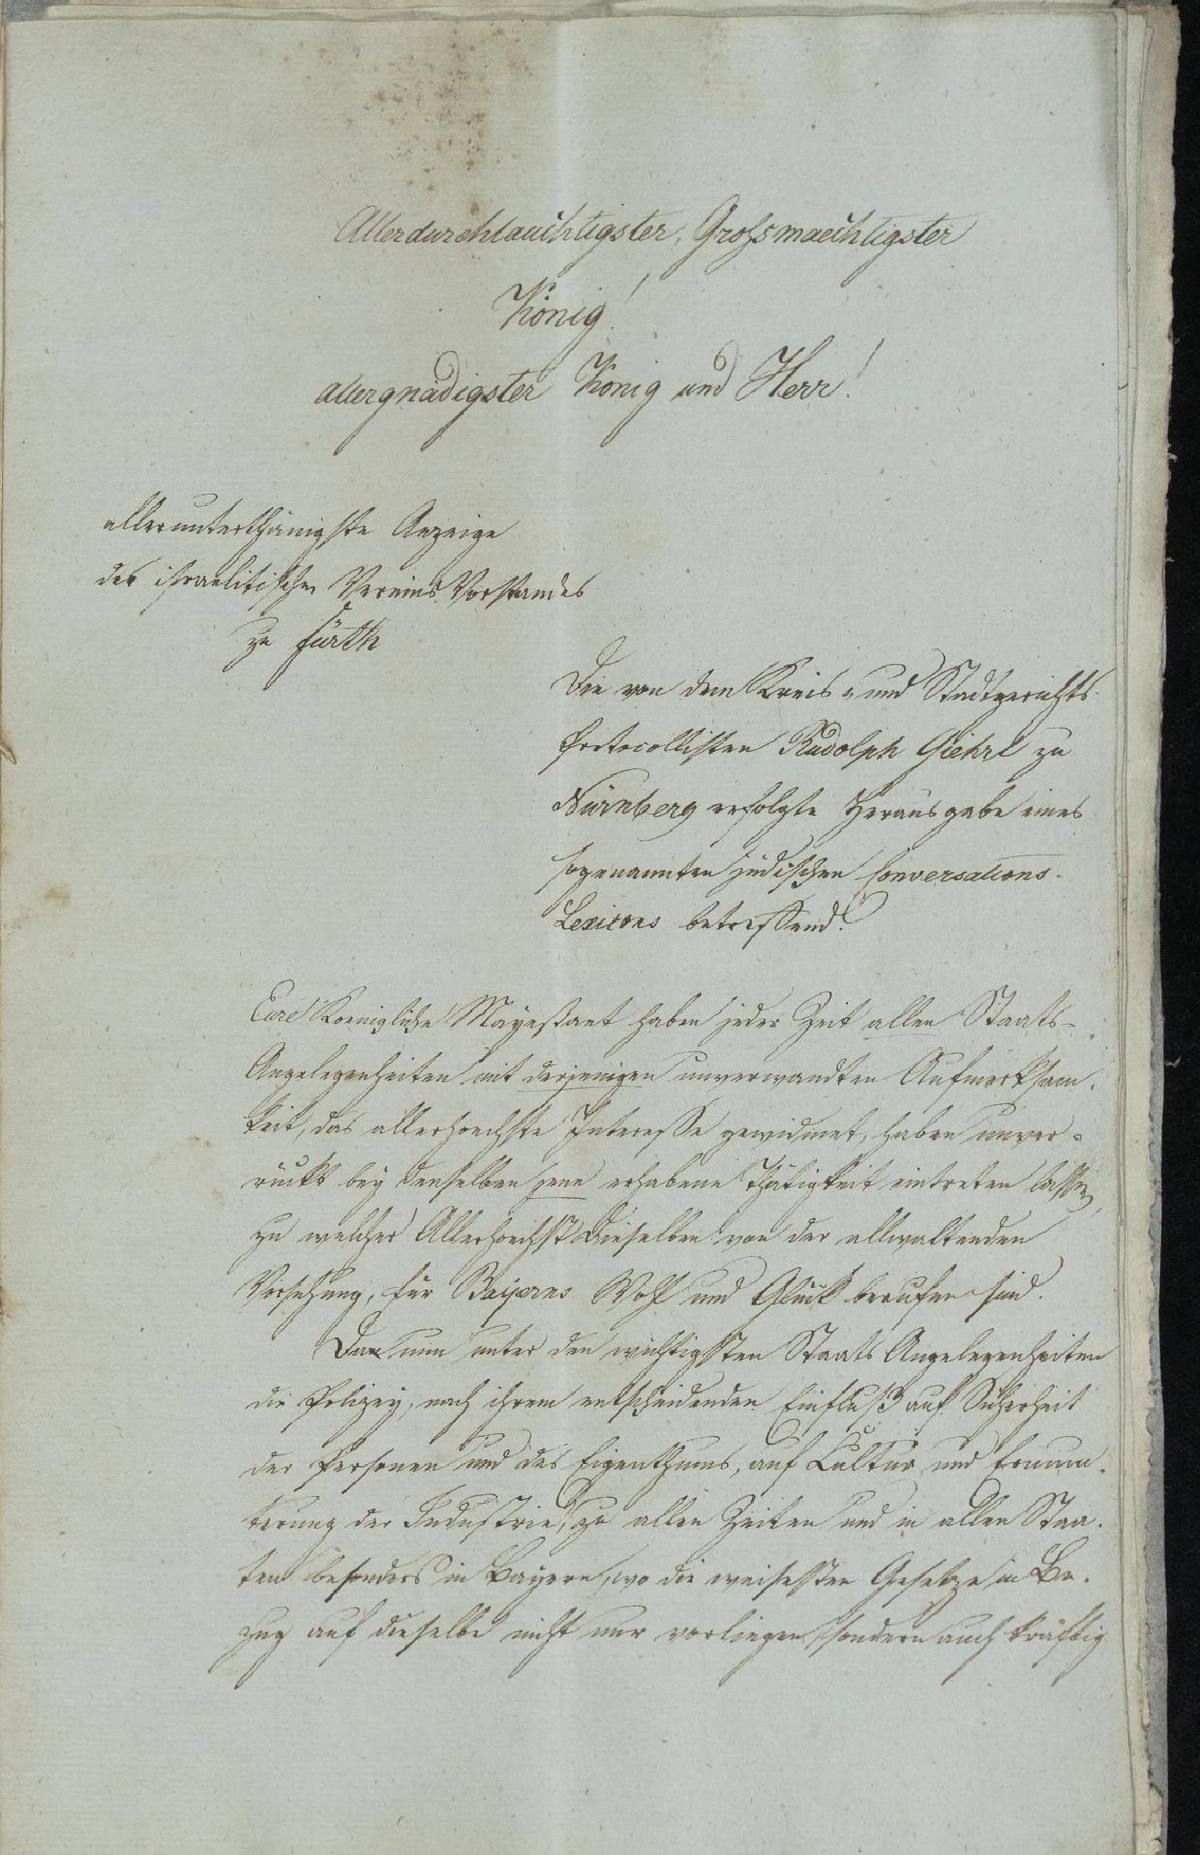 Allerdurchlauchtigster, Grossmaechtigster
König!
allergnädigster König und Herr!
allerunterthänigste Anzeige
des israelitischen Vereins Vorstandes
zu Fürth
Die von dem Kreis- und Stadtgerichts-
Protocollisten Rudolph Giehrl zu
Nürnberg erfolgte Herausgabe eines
sogenannten jüdischen Conversations-
Lexicons betreffend.
Eure Koenigliche Mayestaet haben jeder Zeit allen Staats-
Angelegenheiten mit derjenigen unverwandten Aufmerksam-
keit, das allerhoechste Interesse gewidmet, haben unver-
rückt bey denselben jene erhabene Thätigkeit eintreten lassen,
zu welcher Allerhoechst dieselben von der allwaltenden
Vorsehung, für Bayerns Wohl und Glück berufen sind.
Da nun unter den wichtigsten Staats Angelegenheiten
die Polizey, nach ihrem entscheidenden Einfluß auf Sicherheit
der Personen und des Eigenthums, auf Cultur und Ermun-
terung der Industrie, zu allen Zeiten und in allen Staa-
ten besonders in Bayern, wo die weisesten Gesetze in Be-
zug auf dieselbe nicht nur vorliegen, sondern auch kräftig